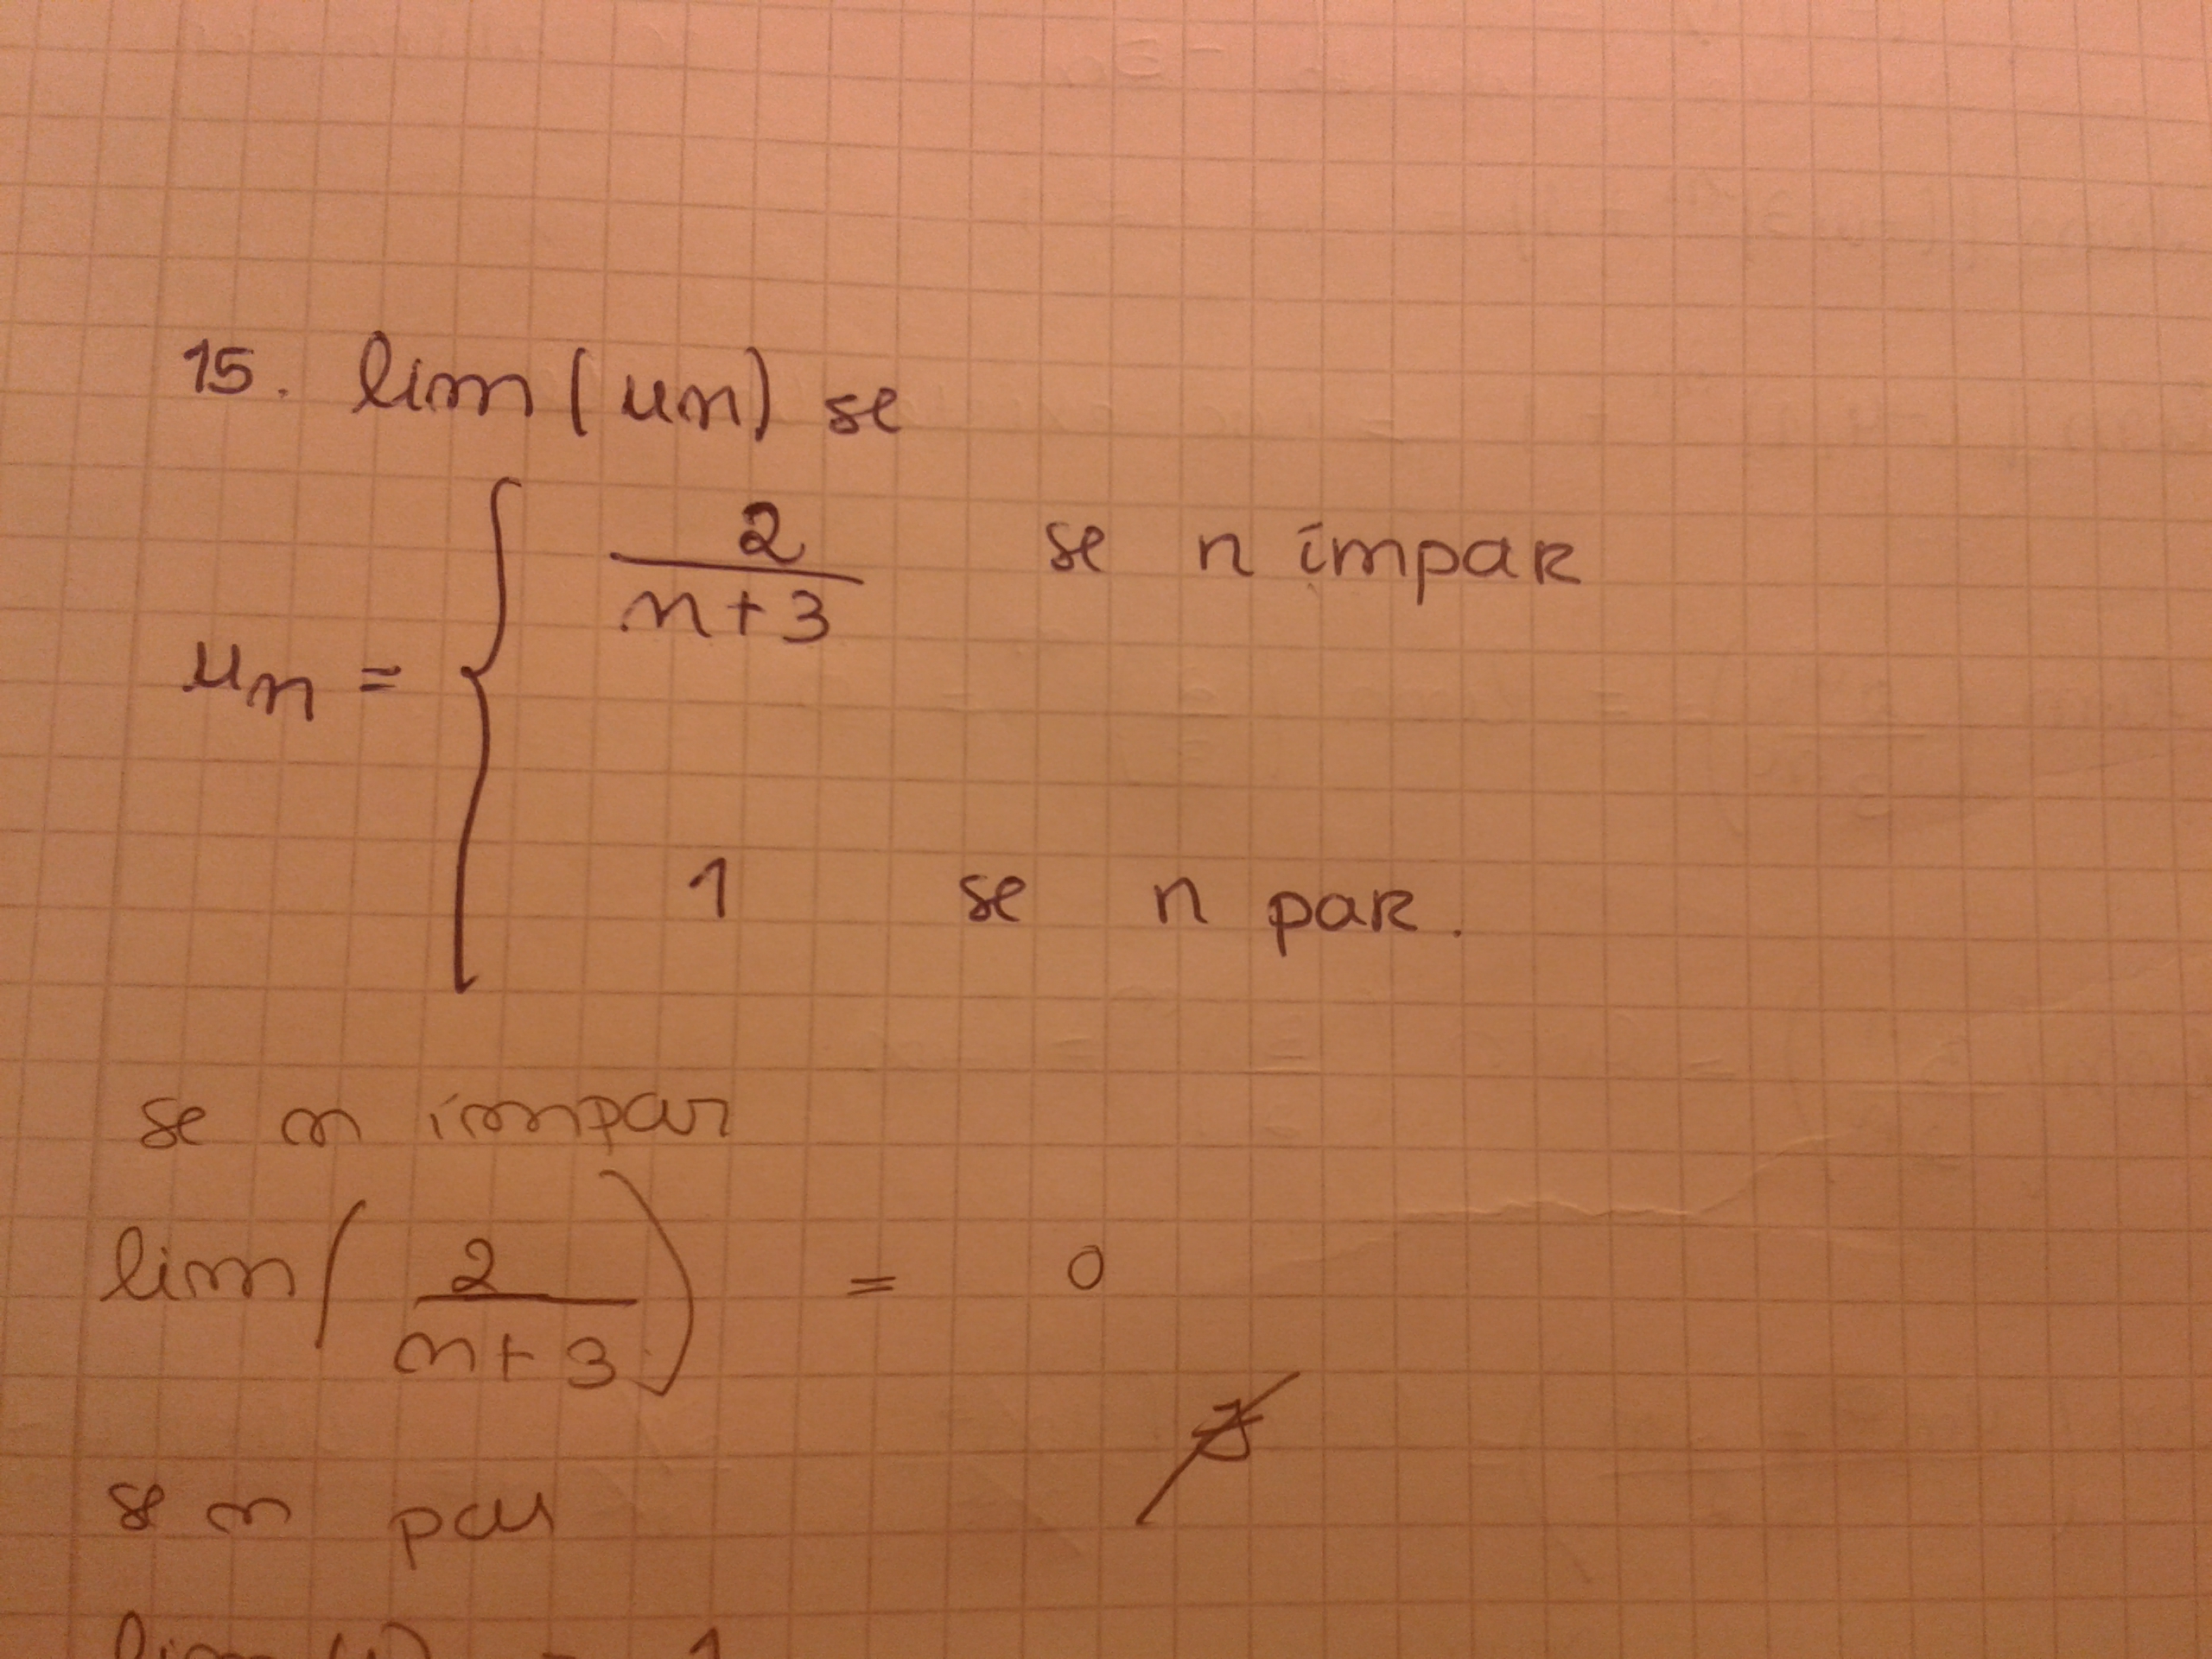 15. lim (un) se
un = { 2/(n+3) se n ímpar
1 se n par.
se n ímpar
lim ( 2/(n+3) ) = 0
se n par
lim (1) = 1